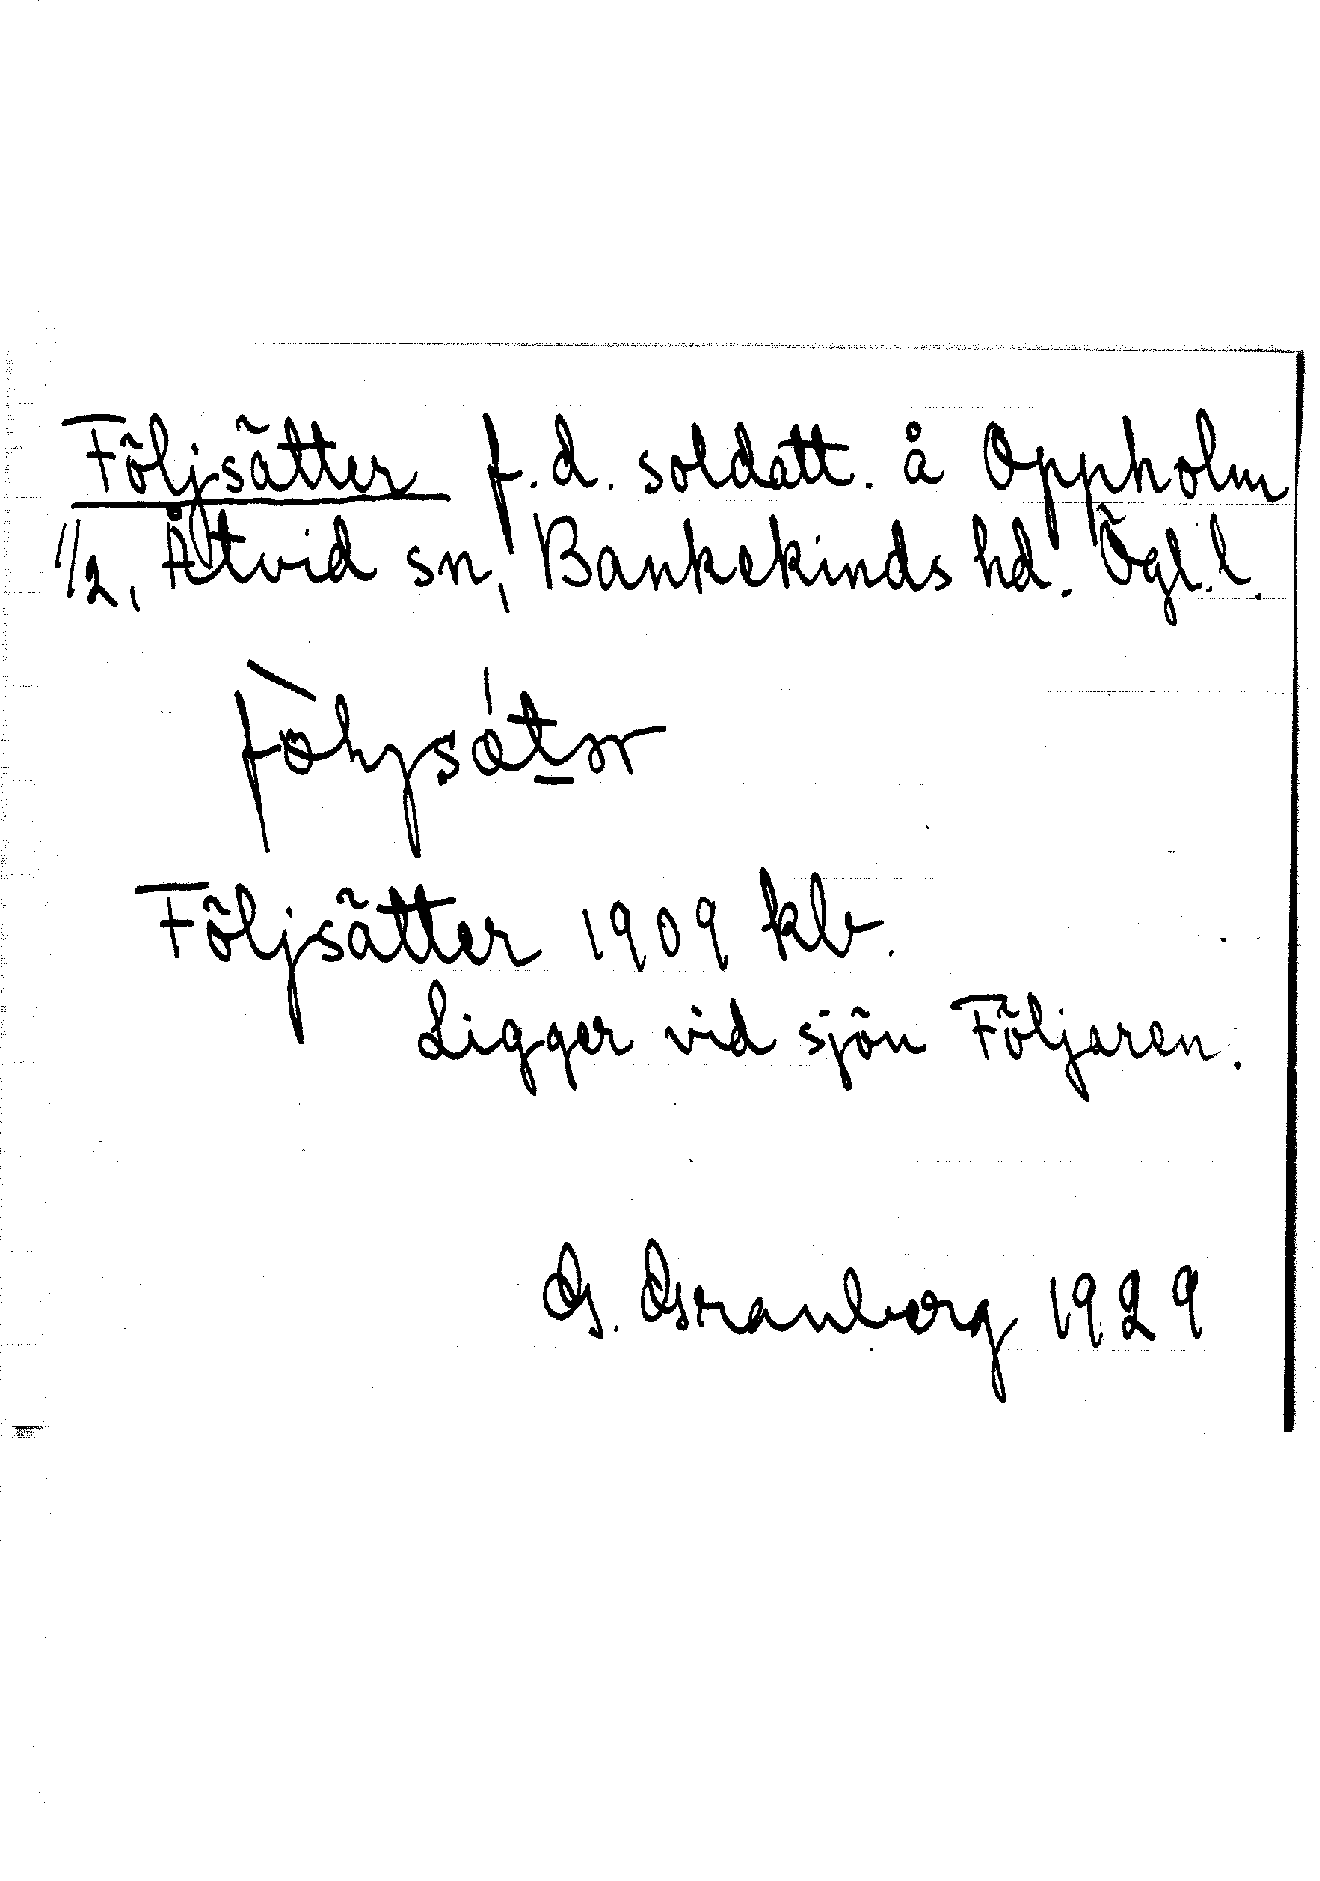 Följsätter f.d. soldatt. å Oppholm
1/2, Åtvid sn, Bankekinds hd. Ögl.l.
Följsätter 1909 kb.
Ligger vid sjön Följaren.
G. Granberg 1929